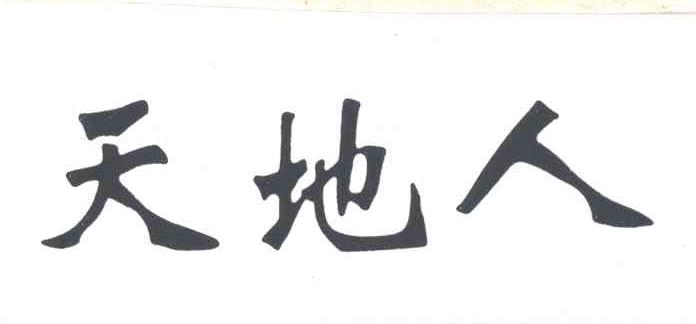 天地人